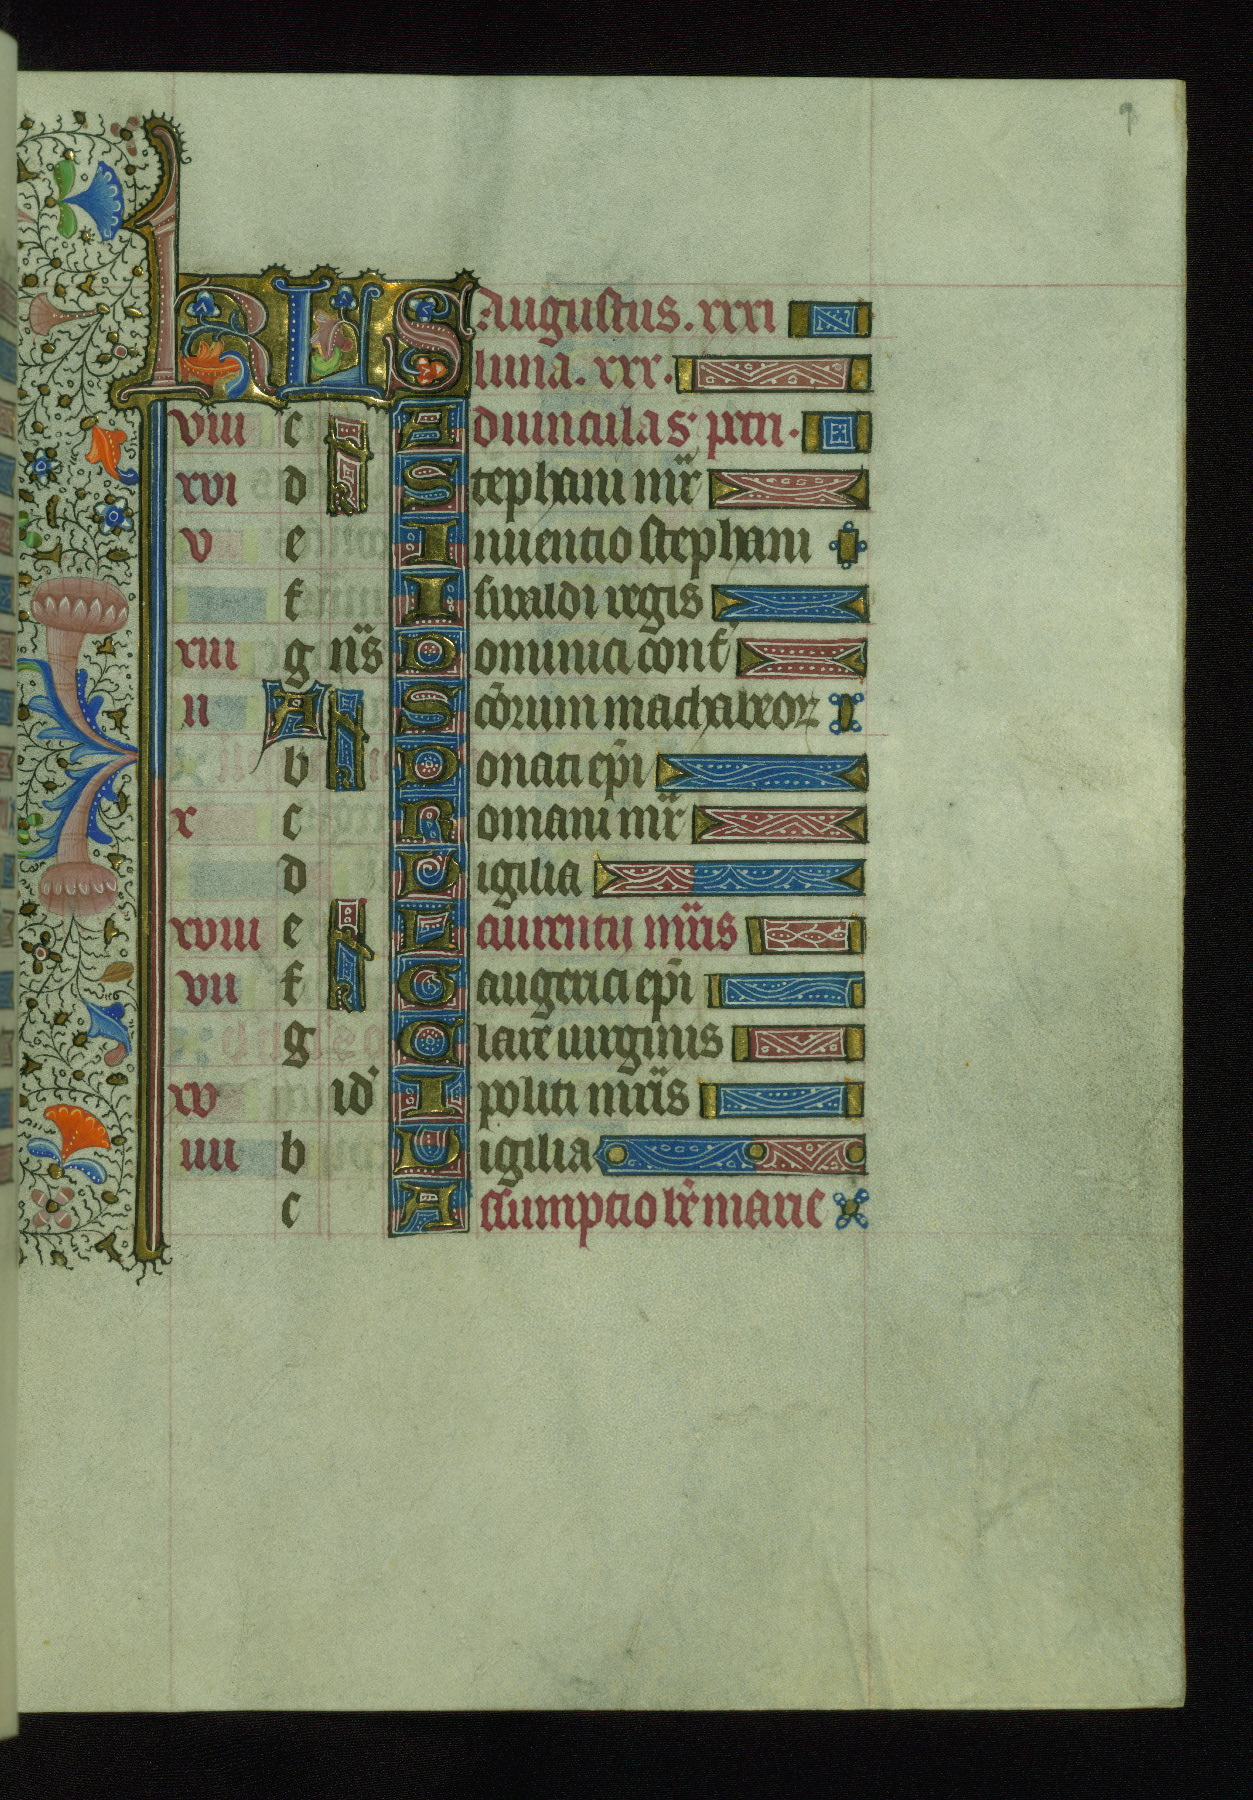 KLS Augustus. xxxi
luna. xxx.
viii c Aduincula s' petri.
xvi d Stephani mr̄
v e Inuentio stephani
f Iswaldi regis
xiii g ns Dominici conf
ii A Scōrum machabeorꝝ
b Donati ep̄i
x c Romani mr̄
d Uigilia
xviii e Laurentii mr̄is
vii f Gaugerici ep̄i
g Clare uirginis
xv id' Ipoliti mr̄is
iiii b Uigilia
c Assumptio be marie